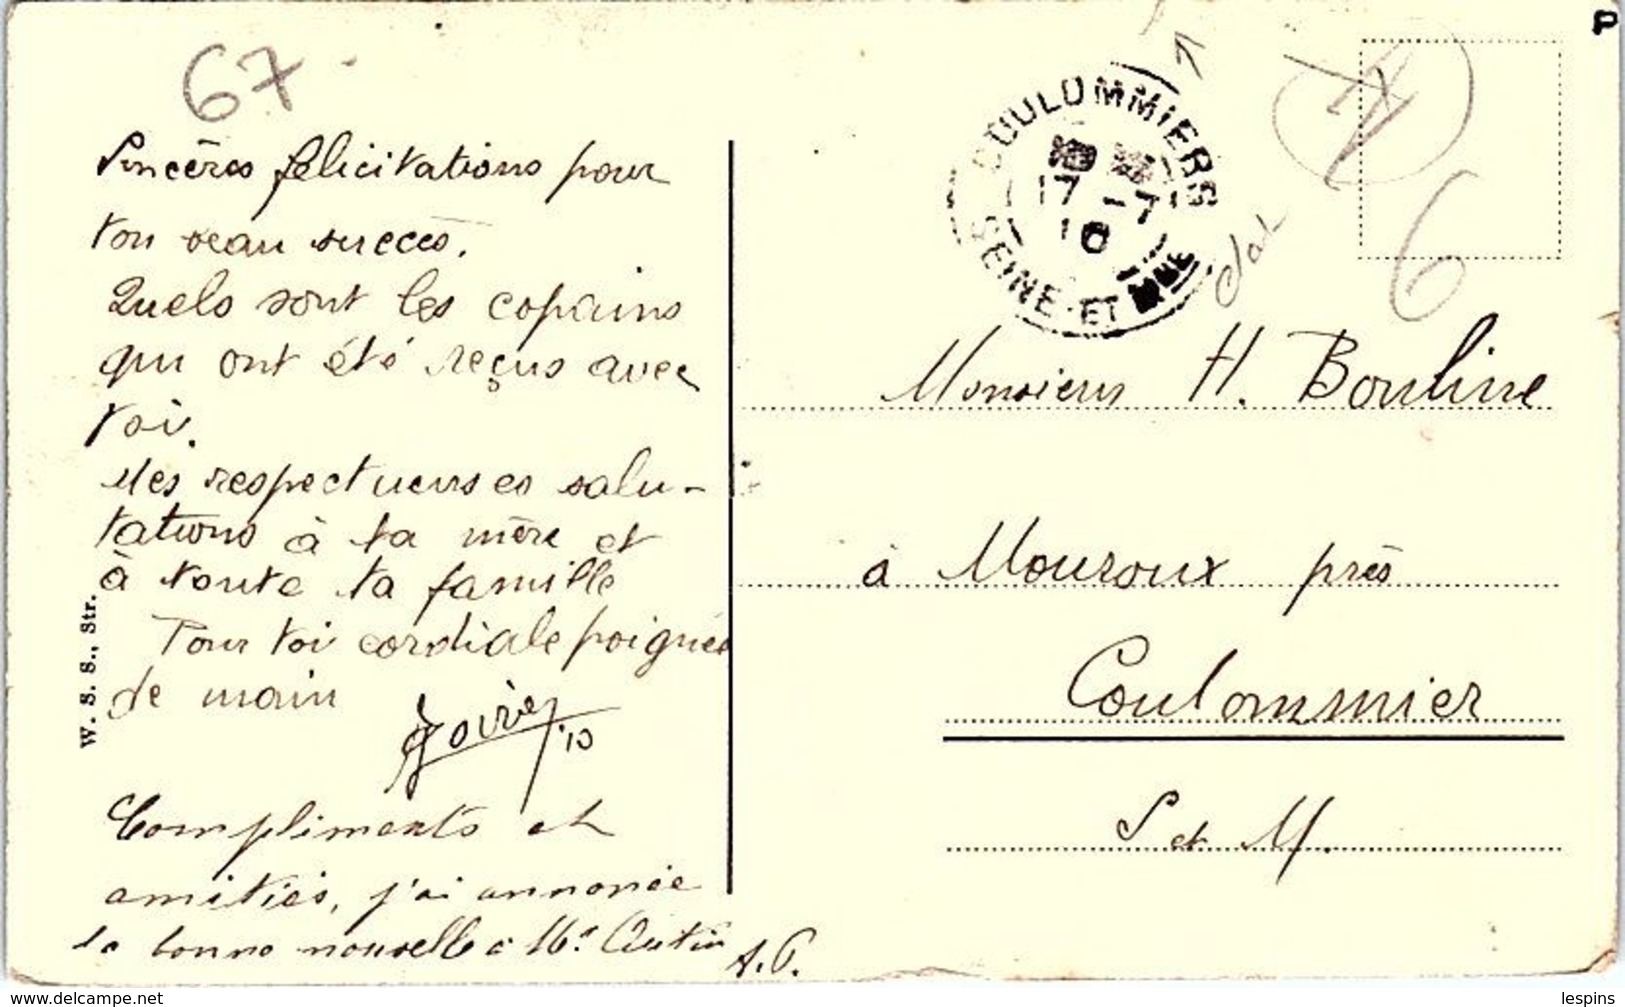 67
Sincères félicitations pour
ton beau succès.
Quels sont les copains
qui ont été reçus avec
toi.
Mes respectueuses salu-
tations à ta mère et
à toute ta famille
Pour toi cordiale poignée
de main
'10
Compliments et
amitiés, j'ai annoncé
la bonne nouvelle à Mr
A.P.
W. S. S., Str.
COULOMMIERS
17 -7
10
SEINE-ET-MNE
6
P
Monsieur H. Bouline
à Mouroux près
Coulommier
S et M.
www.delcampe.net
lespins